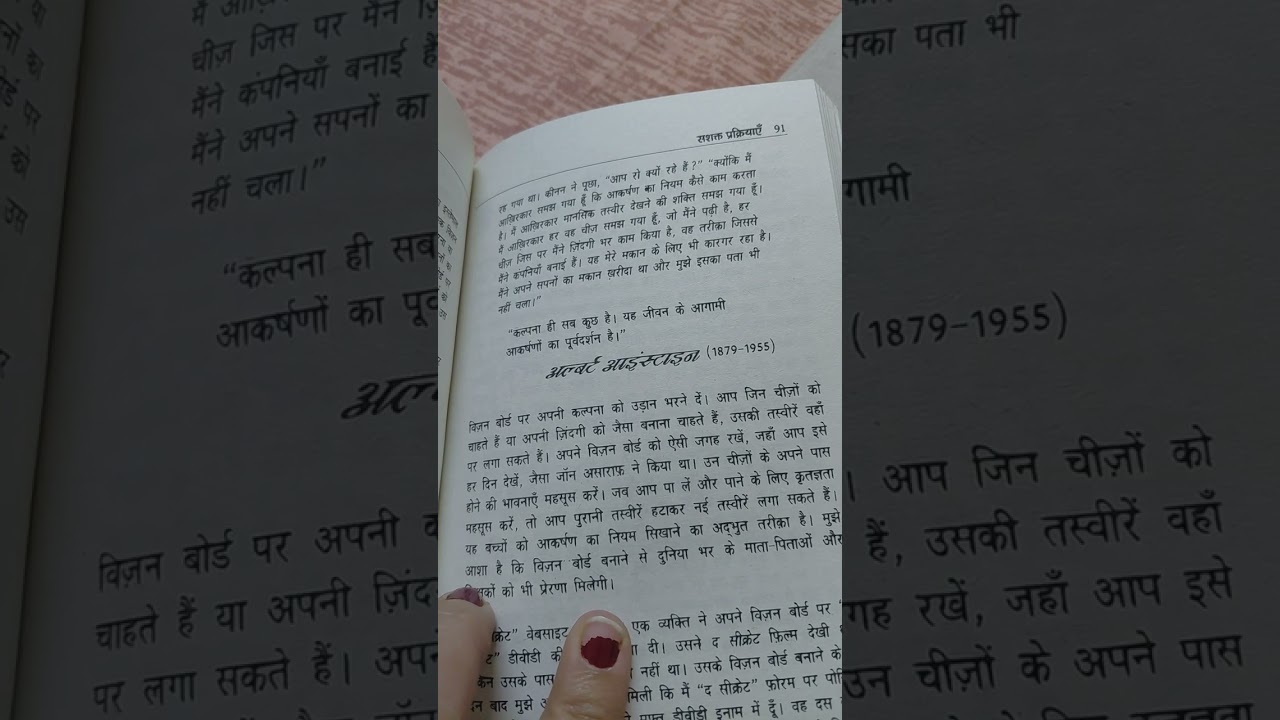 सशक्त प्रक्रियाएँ 91
रह गया था। कीनन ने पूछा, “आप रो क्यों रहे हैं?” “क्योंकि मैं
आख़िरकार समझ गया हूँ कि आकर्षण का नियम कैसे काम करता
है। मैं आख़िरकार मानसिक तस्वीर देखने की शक्ति समझ गया हूँ।
मैं आख़िरकार हर वह चीज़ समझ गया हूँ, जो मैंने पढ़ी है, हर
चीज़ जिस पर मैंने ज़िंदगी भर काम किया है, वह तरीक़ा जिससे
मैंने कंपनियाँ बनाई हैं। यह मेरे मकान के लिए भी कारगर रहा है।
मैंने अपने सपनों का मकान ख़रीदा था और मुझे इसका पता भी
नहीं चला।”
“कल्पना ही सब कुछ है। यह जीवन के आगामी
आकर्षणों का पूर्वदर्शन है।”
अल्बर्ट आइंस्टाइन (1879-1955)
विज़न बोर्ड पर अपनी कल्पना को उड़ान भरने दें। आप जिन चीज़ों को
चाहते हैं या अपनी ज़िंदगी को जैसा बनाना चाहते हैं, उसकी तस्वीरें वहाँ
पर लगा सकते हैं। अपने विज़न बोर्ड को ऐसी जगह रखें, जहाँ आप इसे
हर दिन देखें, जैसा जॉन असाराफ़ ने किया था। उन चीज़ों के अपने पास
होने की भावनाएँ महसूस करें। जब आप पा लें और पाने के लिए कृतज्ञता
महसूस करें, तो आप पुरानी तस्वीरें हटाकर नई तस्वीरें लगा सकते हैं।
यह बच्चों को आकर्षण का नियम सिखाने का अद्भुत तरीक़ा है। मुझे
आशा है कि विज़न बोर्ड बनाने से दुनिया भर के माता-पिताओं और
को भी प्रेरणा मिलेगी।
वेबसाइट एक व्यक्ति ने अपने विज़न बोर्ड पर
डीवीडी की दी। उसने द सीक्रेट फ़िल्म देखी
उसके पास नहीं था। उसके विज़न बोर्ड बनाने के
बाद मुझे मिली कि मैं “द सीक्रेट” फ़ोरम पर
डीवीडी इनाम में दूँ। वह दस